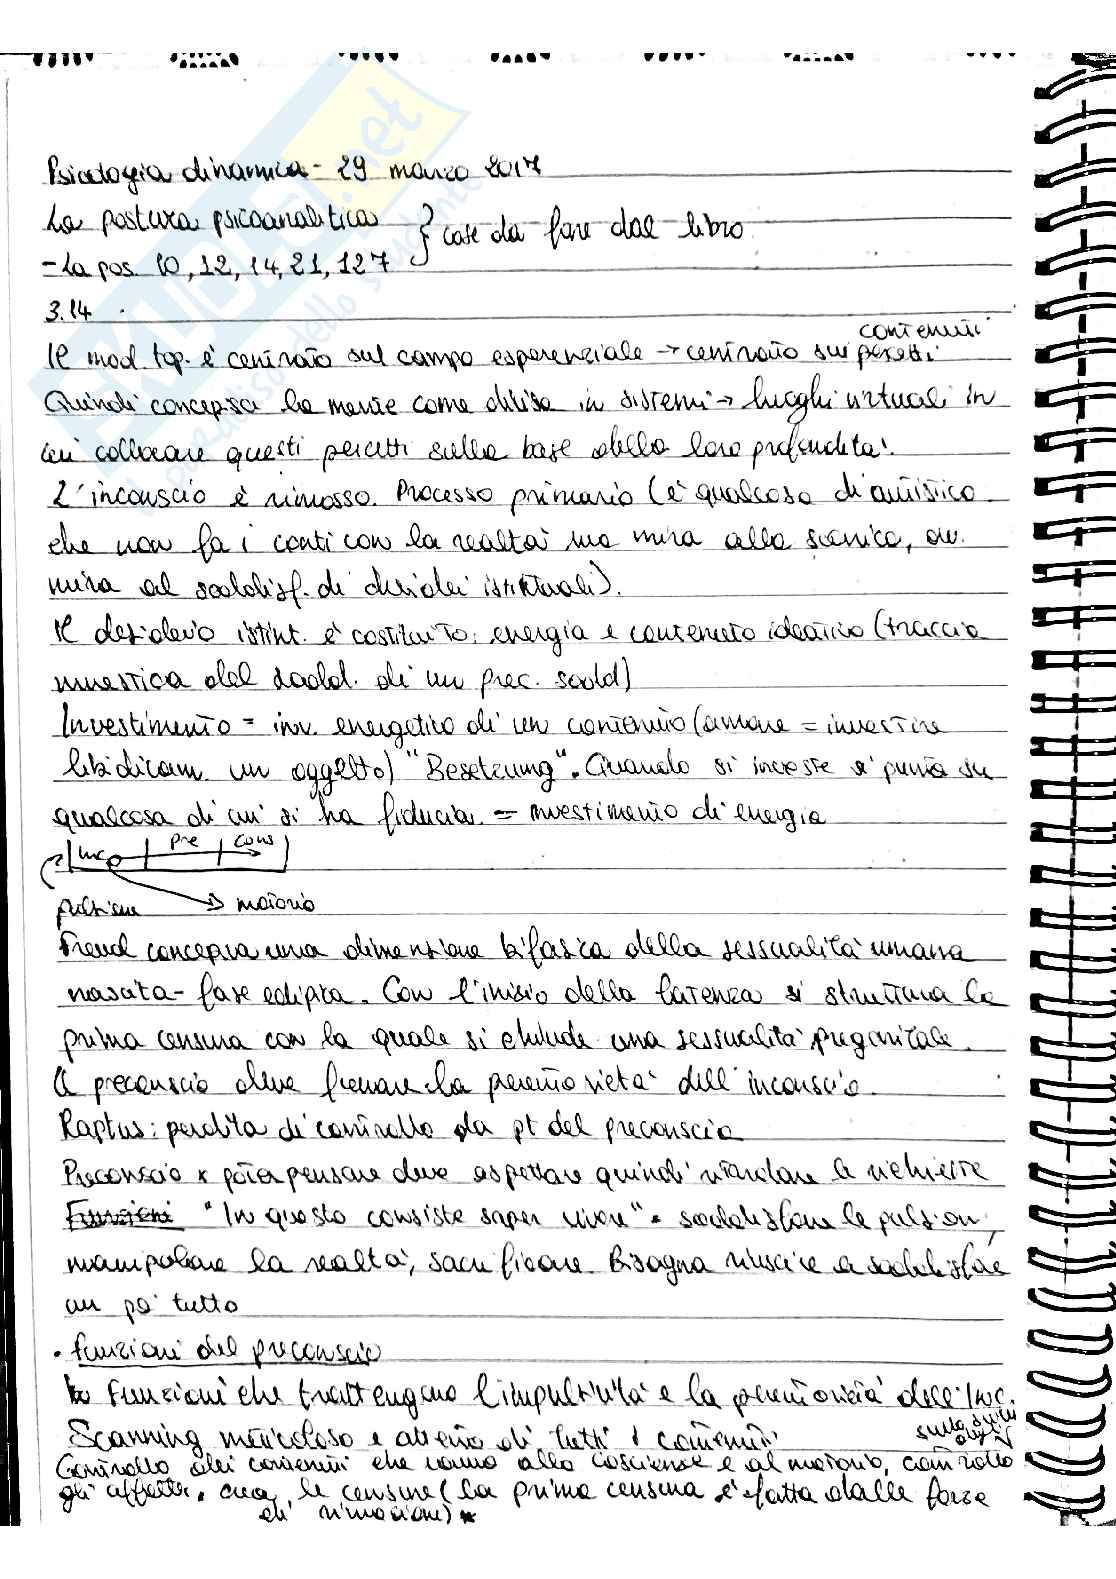 Psicologia dinamica - 29 marzo 2017
La postura psicoanalitica } cose da fare dal libro
- La pos. 10, 12, 14, 21, 127
3.14
Il mod. top. è centrato sul campo esperenziale → centrato sui percetti contenuti
Quindi concepisci la mente come divisa in sistemi → luoghi virtuali in
cui collocare questi percetti sulla base della loro profondità.
L'inconscio è rimosso. Processo primario (è qualcosa di autistico
che non fa i conti con la realtà ma mira alla scarica, ov.
mira al soddisf. di desideri istintuali).
Il desiderio istint. è costituito: energia e contenuto ideativo (traccia
mnestica del soddd. di un prec. soddd)
Investimento = inv. energetico di un contenuto (amare = investire
libidicam. un oggetto) "Besetzung". Quando si investe si punta su
qualcosa di cui si ha fiducia. = investimento di energia
Inc pre cons
pulsione → motorio
Freud concepiva una dimensione bifasica della sessualità umana
nascita - fase edipica. Con l'inizio della latenza si struttura la
prima censura con la quale si chiude una sessualità pregenitale.
Il preconscio deve frenare la perentorietà dell'inconscio.
Raptus: perdita di controllo da pt del preconscio
Preconscio x poter pensare deve aspettare quindi ritardare le richieste
Funzioni "In questo consiste saper vivere". soddisfare le pulsioni,
manipolare la realtà, sacrificare. Bisogna riuscire a soddisfare
un po' tutto
• funzioni del preconscio
↳ Funzioni che trattengano l'impulsività e la perentorietà dell'Inc.
Scanning meticoloso e attento di tutti i contenuti
Controllo dei contenuti che vanno alla coscienza e al motorio, controllo
gli affetti. crea le censure (la prima censura è fatta dalle forze
di rimozione) *
SKUOLA.net
il paradiso dello studente